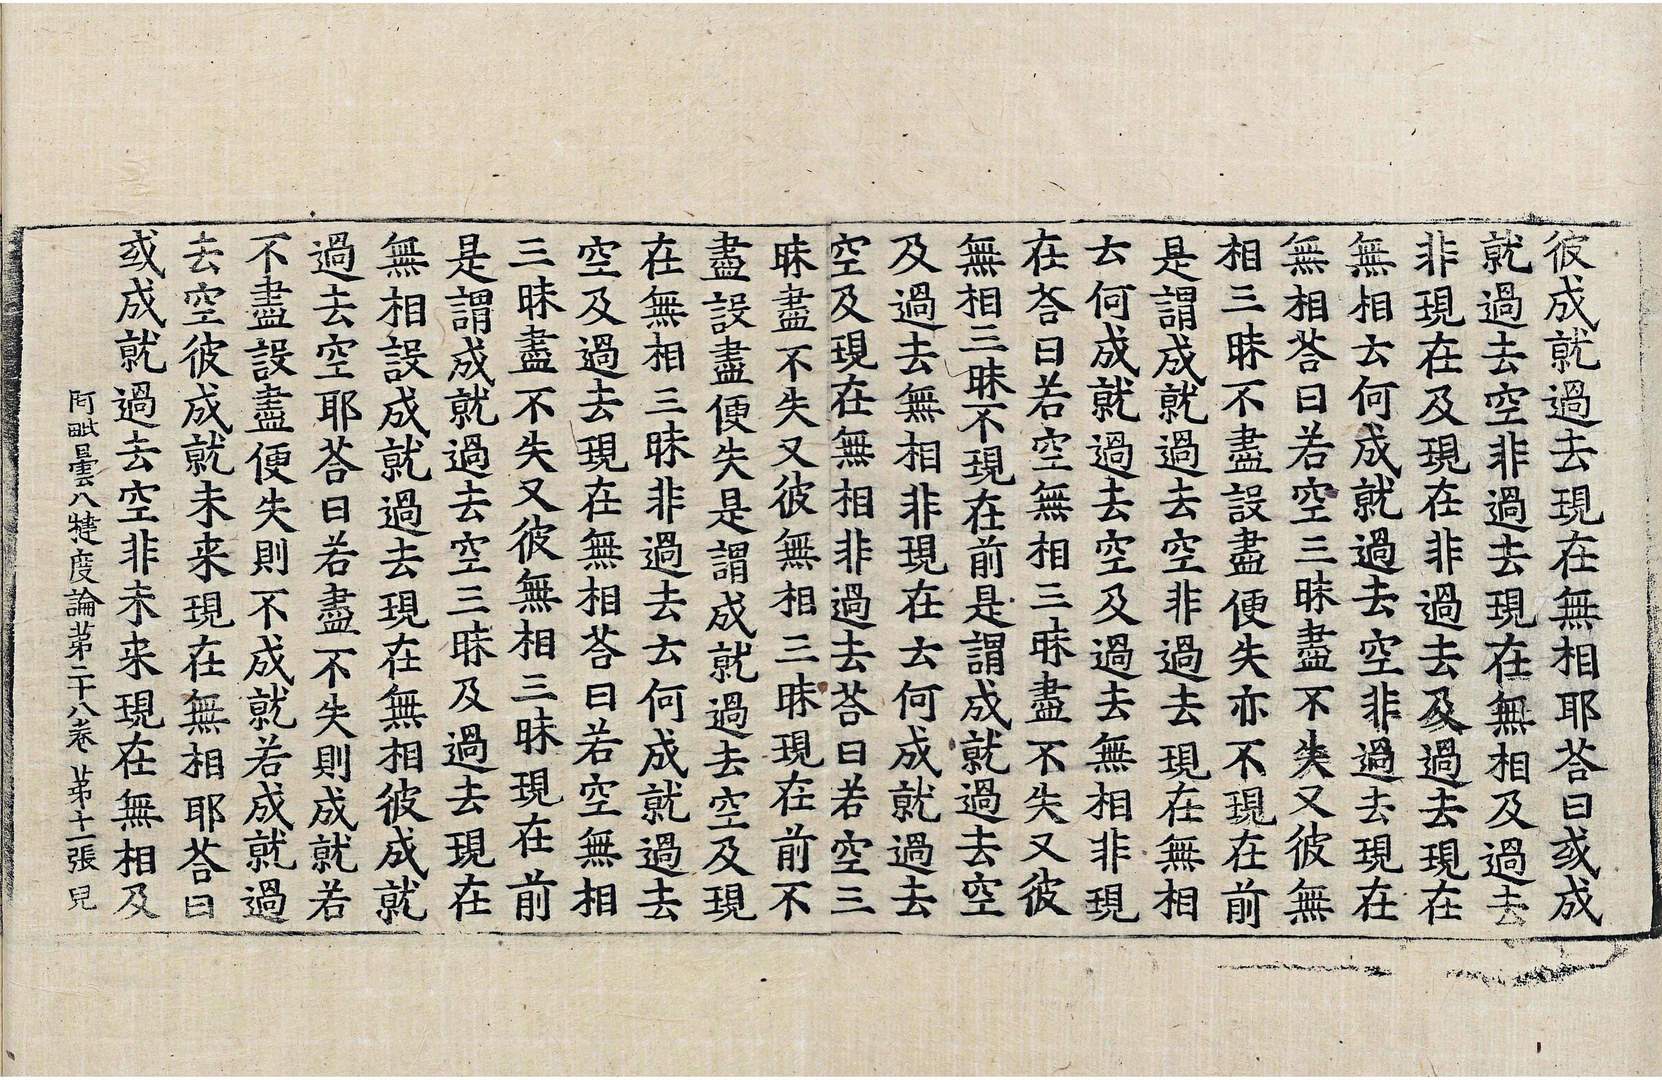 彼成就過去現在無相耶荅曰或成
就過去空非過去現在無相及過去
非現在及現在非過去及過去現在
無相云何成就過去空非過去現在
無相荅曰若空三昧盡不失又彼無
相三昧不盡設盡便失亦不現在前
是謂成就過去空非過去現在無相
云何成就過去空及過去無相非現
在荅曰若空無相三昧盡不失又彼
無相三昧不現在前是謂成就過去空
及過去無相非現在云何成就過去
空及現在無相非過去荅曰若空三
昧盡不失又彼無相三昧現在前不
盡設盡便失是謂成就過去空及現
在無相三昧非過去云何成就過去
空及過去現在無相荅曰若空無相
三昧盡不失又彼無相三昧現在前
是謂成就過去空三昧及過去現在
無相設成就過去現在無相彼成就
過去空耶荅曰若盡不失則成就若
不盡設盡便失則不成就若成就過
去空彼成就未来現在無相耶荅曰
或成就過去空非未来現在無相及
阿毗曇八犍度論苐二十八卷 苐十二張 皃